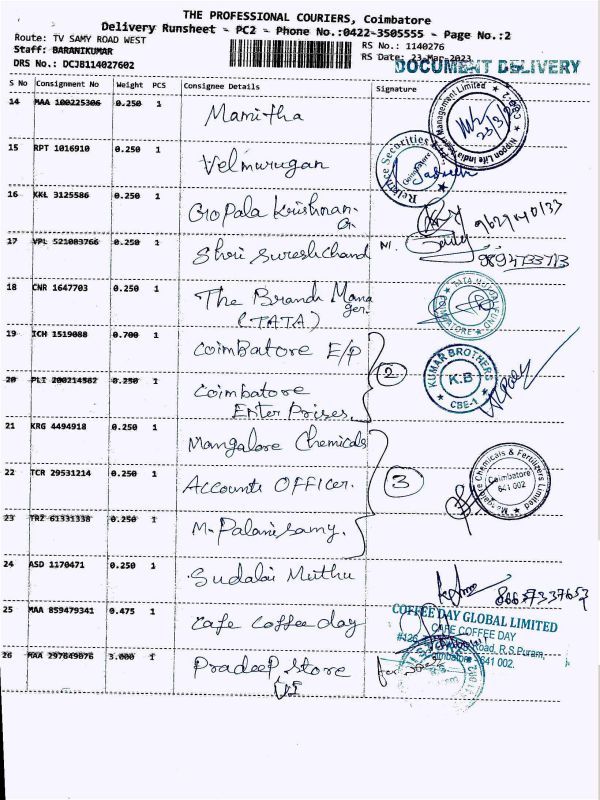 THE PROFESSIONAL COURIERS, Coimbatore
Delivery Runsheet - PC2 - Phone No.:0422-3505555 - Page No.:2
Route: TV SAMY ROAD WEST
RS No.: 1140276
Staff: BARANIKUMAR
RS Date: 23-Mar-2023
DRS No.: DCJB114027602
DOCUMENT DELIVERY
S No Consignment No Weight PCS Consignee Details Signature
14 MAA 100225306 0.250 1 Mamitha
Nippon Life India Management Limited
15 RPT 1016910 0.250 1 Velmurugan
Reliance Securities Coimbatore
16 KKL 3125586 0.250 1 Gopala Krishnan. G.
9629740133
17 VPL 521083766 0.250 1 Shri Sureshchand
18 CNR 1647703 0.250 1 The Brand Mana
ger.
(TATA)
TATA MUTUAL FUND COIMBATORE
19 ICH 1519088 0.700 1 Coimbatore E/P
2
KUMAR BROTHERS
K.B
CBE-1
20 PLI 200214582 0.250 1 Coimbatore
Enter Prises.
21 KRG 4494918 0.250 1 Mangalore Chemicals
22 TCR 29531214 0.250 1 Accounts Officer.
3
Mangalore Chemicals & Fertilizers Limited
Coimbatore
641 002
23 TRZ 61331338 0.250 1 M. Palanisamy.
24 ASD 1170471 0.250 1 Sudalai Muthu
25 MAA 859479341 0.475 1 Cafe coffee day
COFFEE DAY GLOBAL LIMITED
CAFE COFFEE DAY
Road, R.S.Puram,
Coimbatore - 641 002.
26 MAA 297649076 3.000 1 Pradeep Store